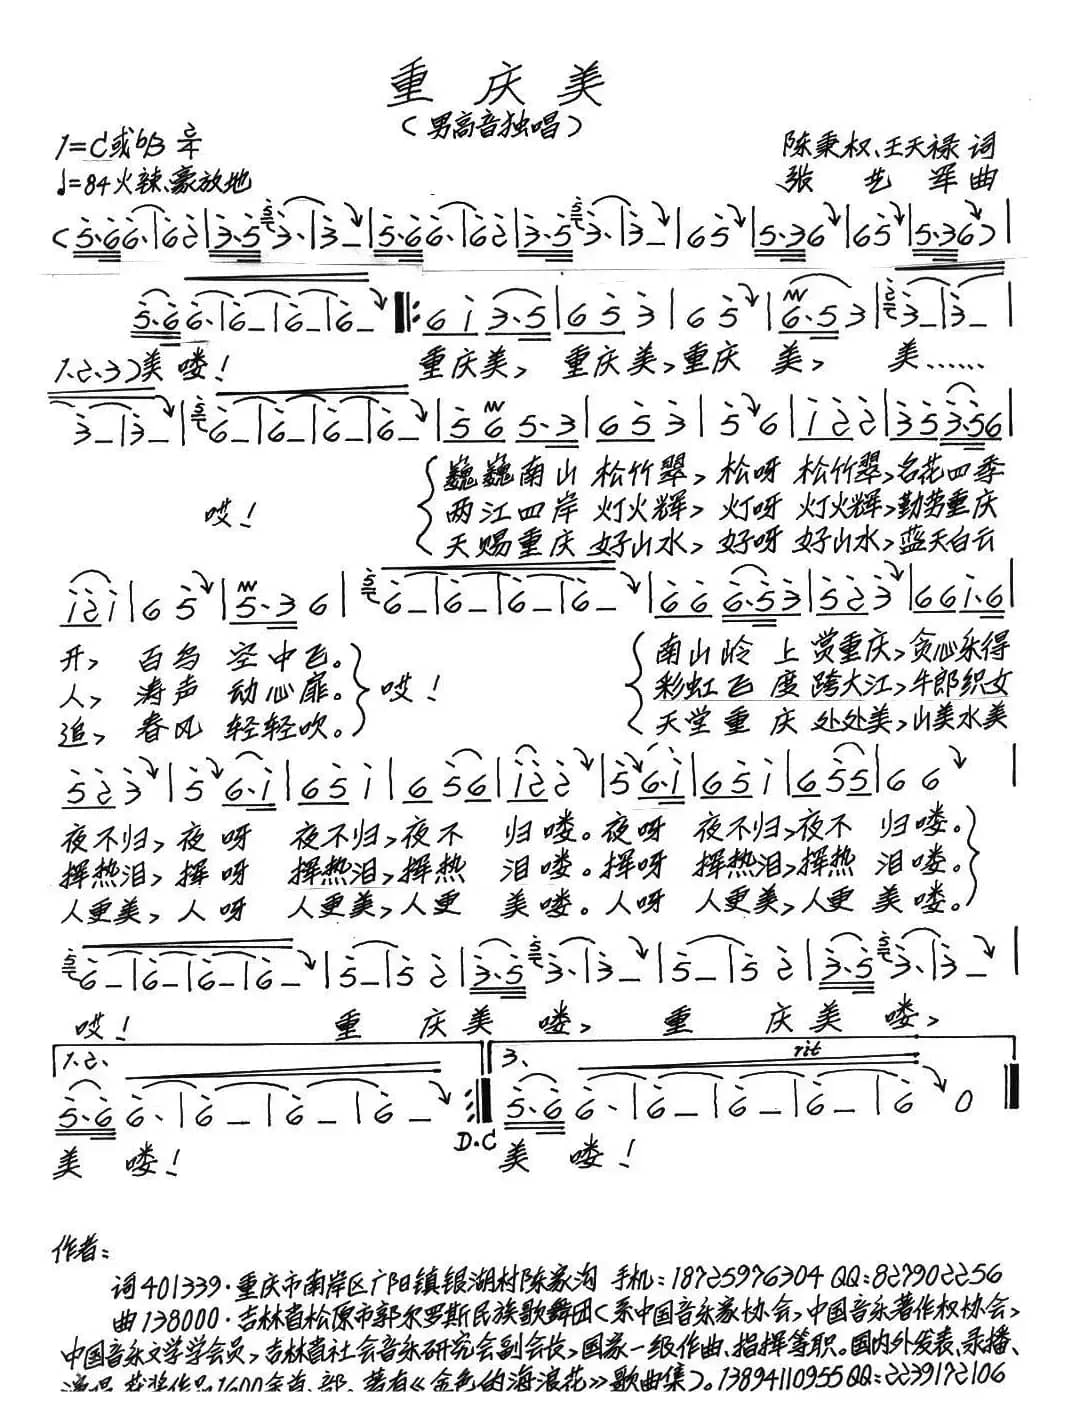 重庆美
（男高音独唱）
1=C或bB 2/4
陈秉权、王天禄 词
♩=84 火辣、豪放地
张艺军 曲
1、2、3）美 喽！ 重庆美， 重庆美，重庆 美， 美……
哎！
巍巍南山 松竹翠，松呀 松竹翠，名花四季
两江四岸 灯火辉，灯呀 灯火辉，勤劳重庆
天赐重庆 好山水，好呀 好山水，蓝天白云
开， 百鸟 空中飞。
人， 涛声 动心扉。 哎！
追， 春风 轻轻吹。
南山岭 上赏重庆，贪心乐得
彩虹飞 度跨大江，牛郎织女
天堂重 庆处处美，山美水美
夜不归，夜呀 夜不归，夜不 归喽。夜呀 夜不归，夜不 归喽。
挥热泪，挥呀 挥热泪，挥热 泪喽。挥呀 挥热泪，挥热 泪喽。
人更美，人呀 人更美，人更 美喽。人呀 人更美，人更 美喽。
哎！ 重 庆美 喽， 重 庆美 喽，
1.2、 3、 rit
D.C
美 喽！ 美 喽！
作者：
词401339·重庆市南岸区广阳镇银湖村陈家沟 手机：18725976304 QQ：827902256
曲138000·吉林省松原市郭尔罗斯民族歌舞团（系中国音乐家协会，中国音乐著作权协会，
中国音乐文学学会员，吉林省社会音乐研究会副会长，国家一级作曲、指挥等职。国内外发表、录播、
演唱、获奖作品1600余首、部。著有《金色的海浪花》歌曲集）。13894110955 QQ：2239172106